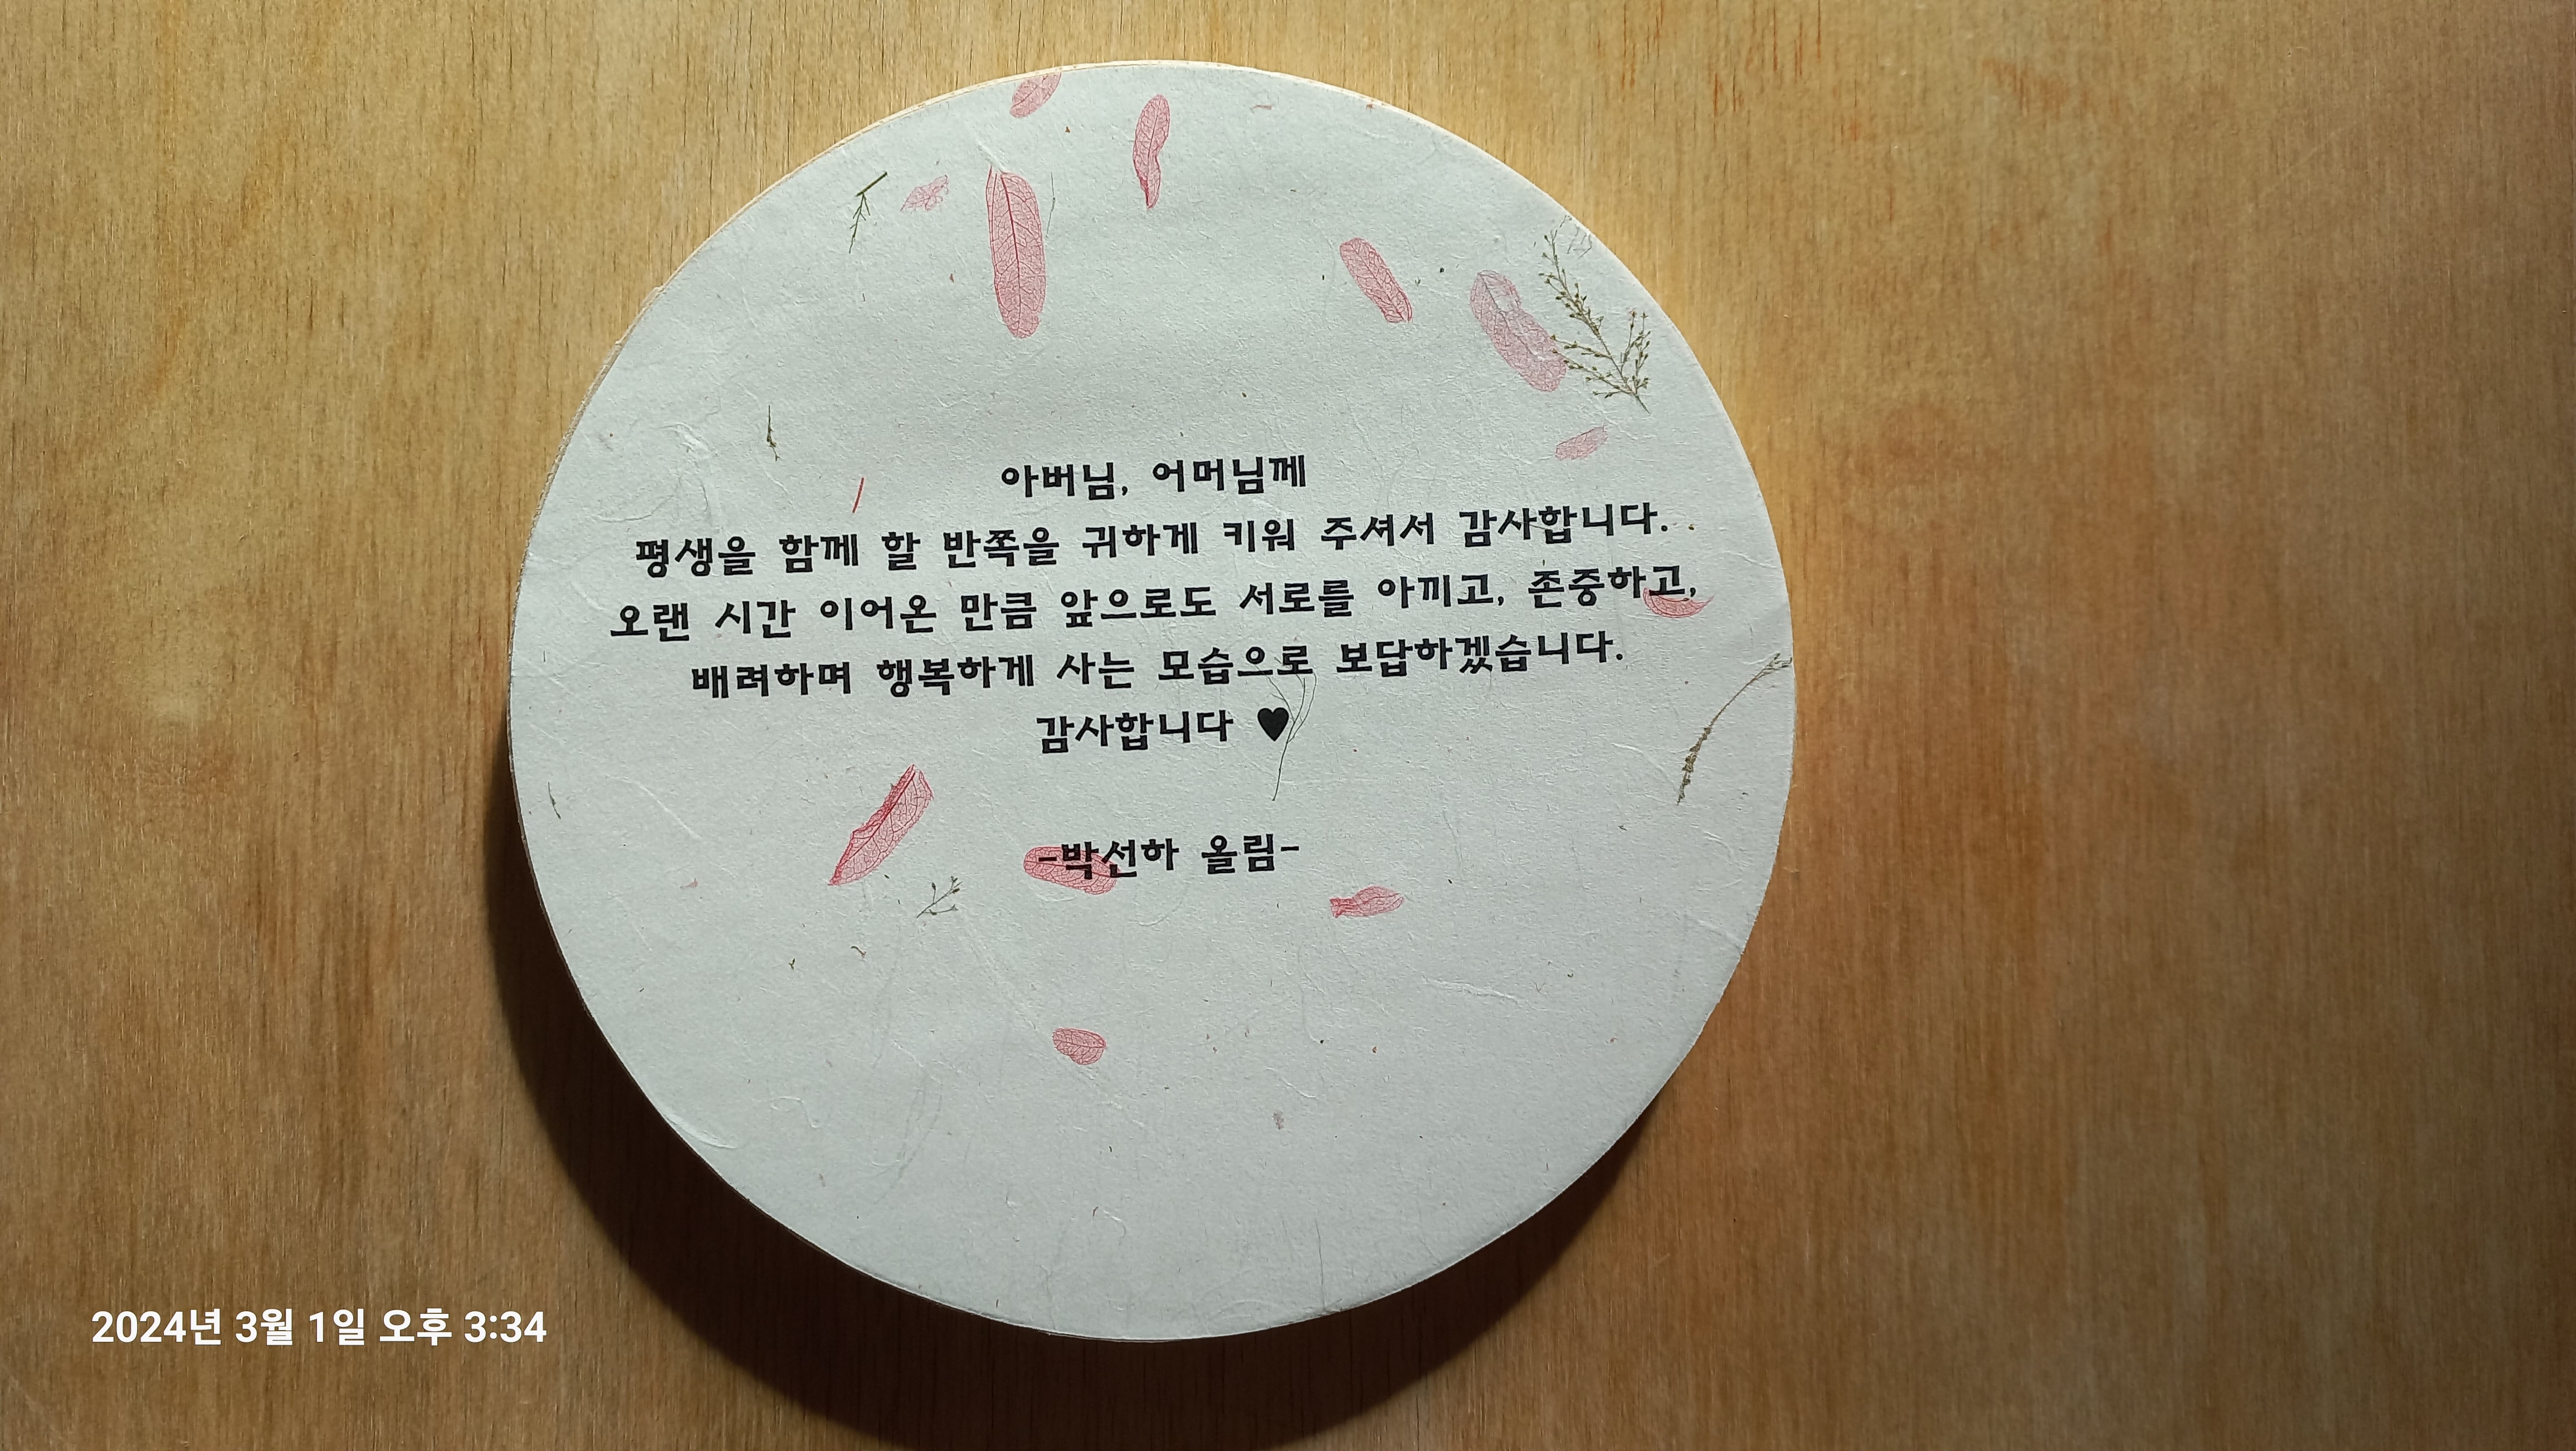 아버님, 어머님께
평생을 함께 할 반쪽을 귀하게 키워 주셔서 감사합니다.
오랜 시간 이어온 만큼 앞으로도 서로를 아끼고, 존중하고,
배려하며 행복하게 사는 모습으로 보답하겠습니다.
감사합니다 ♥
-박선하 올림-
2024년 3월 1일 오후 3:34